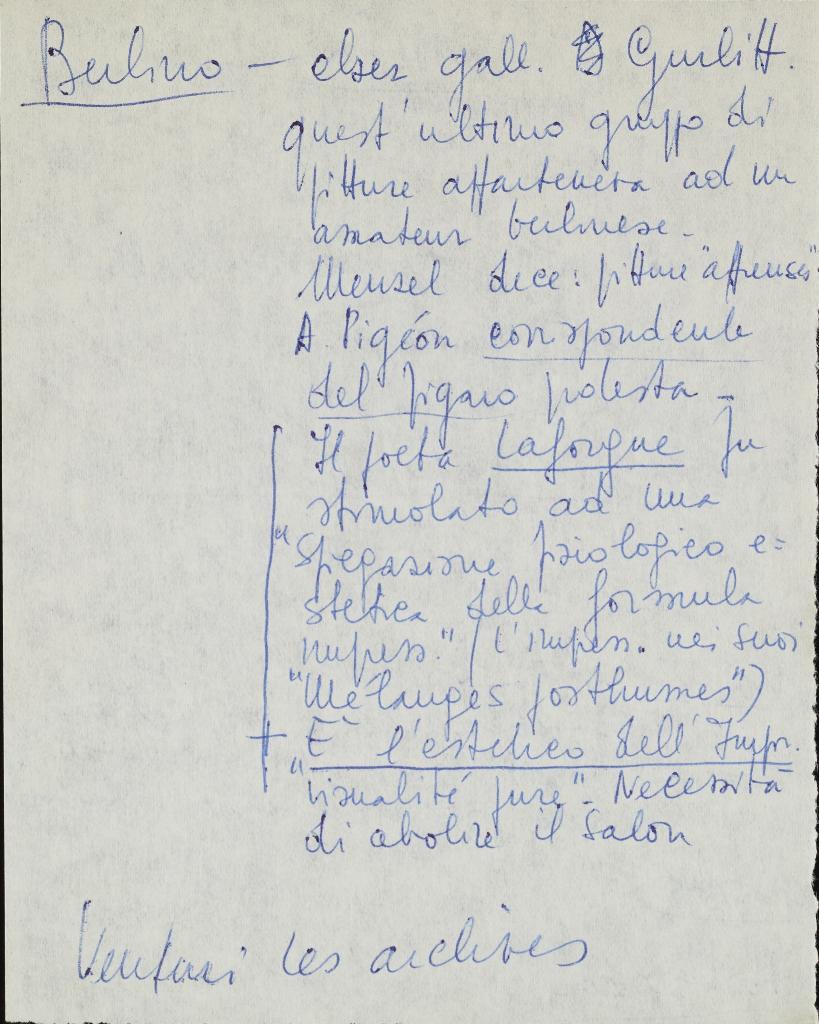 Berlino – gall. Gurlitt.
quest'ultimo gruppo di
pitture apparteneva ad un
amateur berlinese –
Menzel dice: pitture "affreuses"
A. Pigeon corrispondente
del Figaro protesta –
Il poeta Laforgue fu
stimolato ad una
"Spiegazione psiologico e=
stetica della formula
impress." (l'impress. nei suoi
"Mélanges posthumes")
+ È l'estetico dell'Impr.
"visualité pure" – Necessità
di abolire il Salon
Venturi Les archives